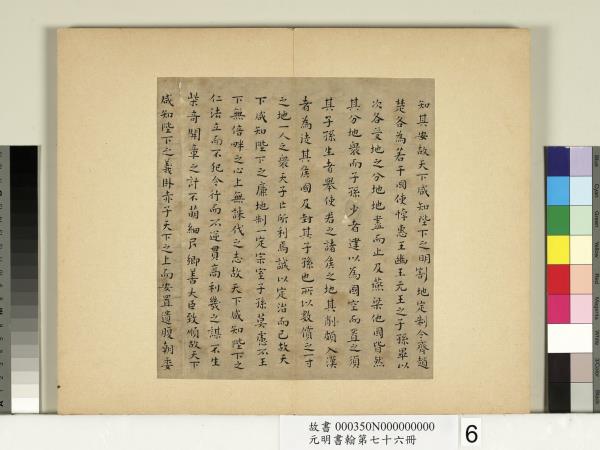 知其安故天下咸知陛下之明割地定制令齊趙
楚各為若干國使悼惠王幽王元王之子孫畢以
次各受地之分地地盡而止及燕梁他國皆然
其分地衆而子孫少者建以為國空而置之須
其子孫生者舉使君之諸侯之地其削頗入漢
者為徙其侯國及封其子孫也所以數償之一寸
之地一人之衆天子亡所利焉誠以定治而已故天
下咸知陛下之廉地制一定宗室子孫莫慮不王
下無倍畔之心上無誅伐之志故天下咸知陛下之
仁法立而不犯令行而不逆貫高利幾之謀不生
柴奇開章之計不萌細民鄉善大臣致順故天下
咸知陛下之義臥赤子天下之上而安置遺腹朝委
故書 000350N000000000
元明書翰第七十六冊
6